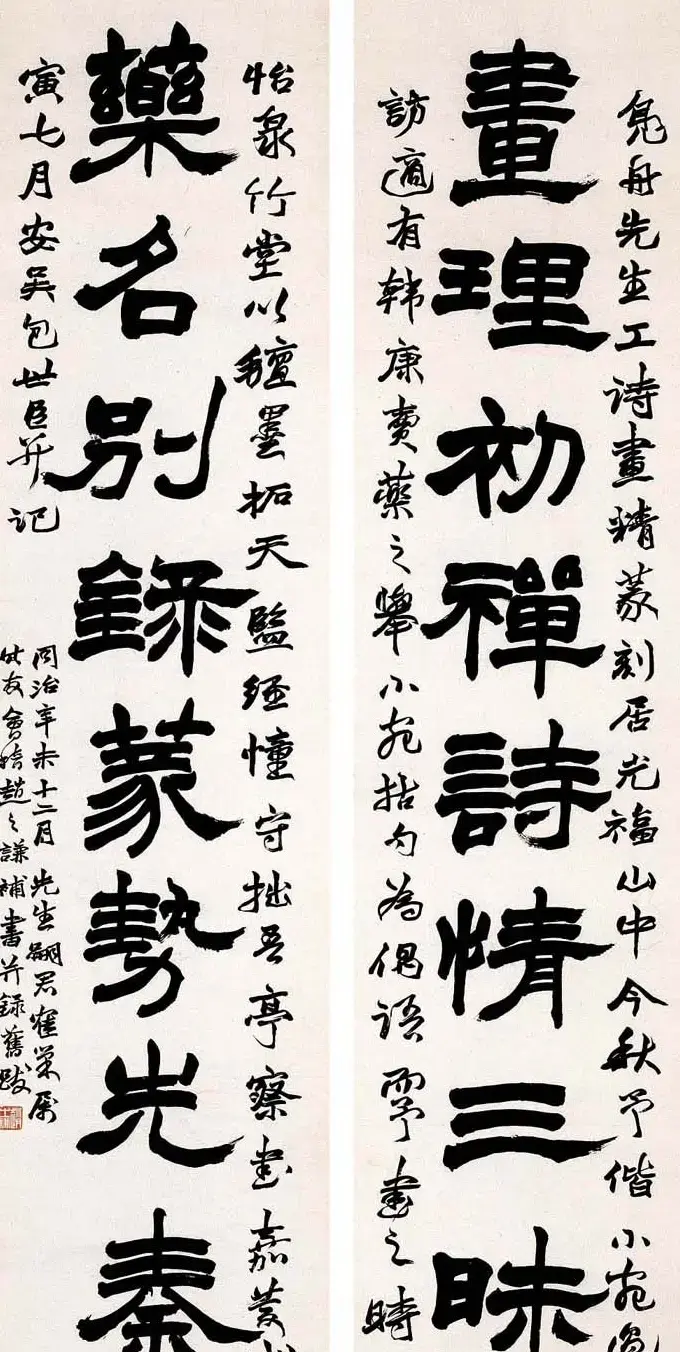 凫舟先生工诗畫精篆刻居光福山中今秋予偕小宛過
畫理初禪詩情三昧
訪適有韩康賣藥之舉小宛括句為偶語而予書之時
怡泉竹堂以氊墨拓天監經幢守拙吾亭察書嘉
藥名別錄篆勢先秦
寅七月安吴包世臣并记
同治辛未十二月先生嗣君
趙之謙補書并録舊跋